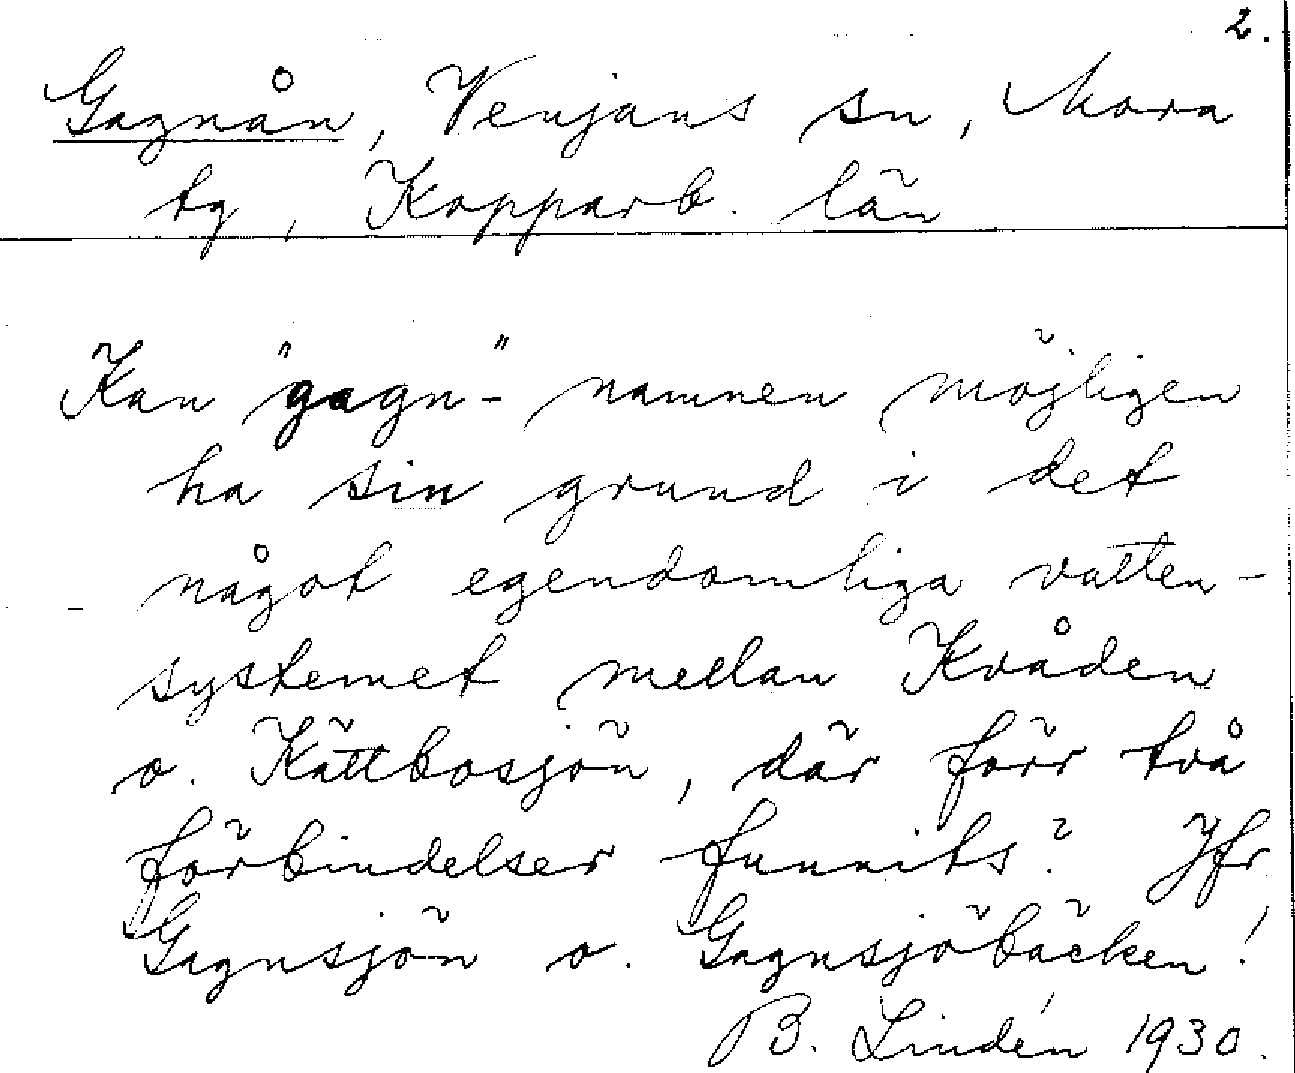 2.
Gagnån, Venjans sn, Mora
tg, Kopparb. län
Kan "gagn-" namnen möjligen
ha sin grund i det
något egendomliga vatten-
systemet mellan Kråden
o. Kättbosjön, där förr två
förbindelser funnits? Jfr
Gagnsjön o. Gagnsjöbäcken!
B. Lindén 1930.